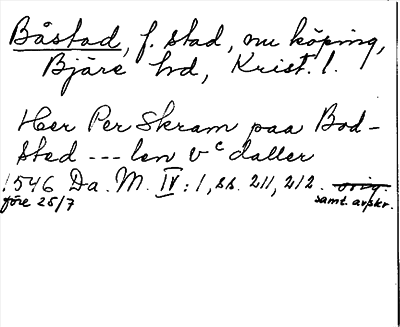 Båstad, f. stad, nu köping,
Bjäre hd, Krist. l.
Her Per Skram paa Bod-
sted --- len vᶜ daller
1546 Da. M. IV: 1, ss. 211, 212. orig.
före 25/7 samt. avskr.